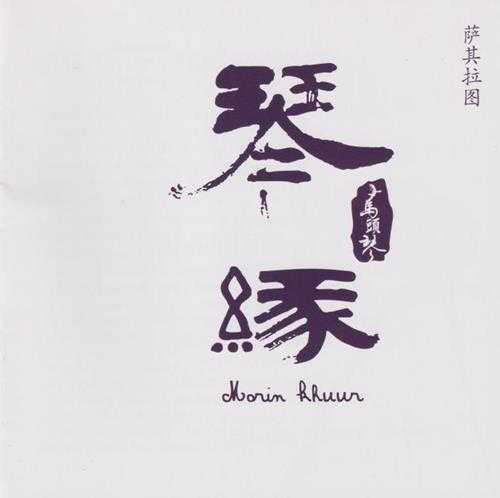 萨其拉图
琴
馬頭琴
緣
Morin khuur